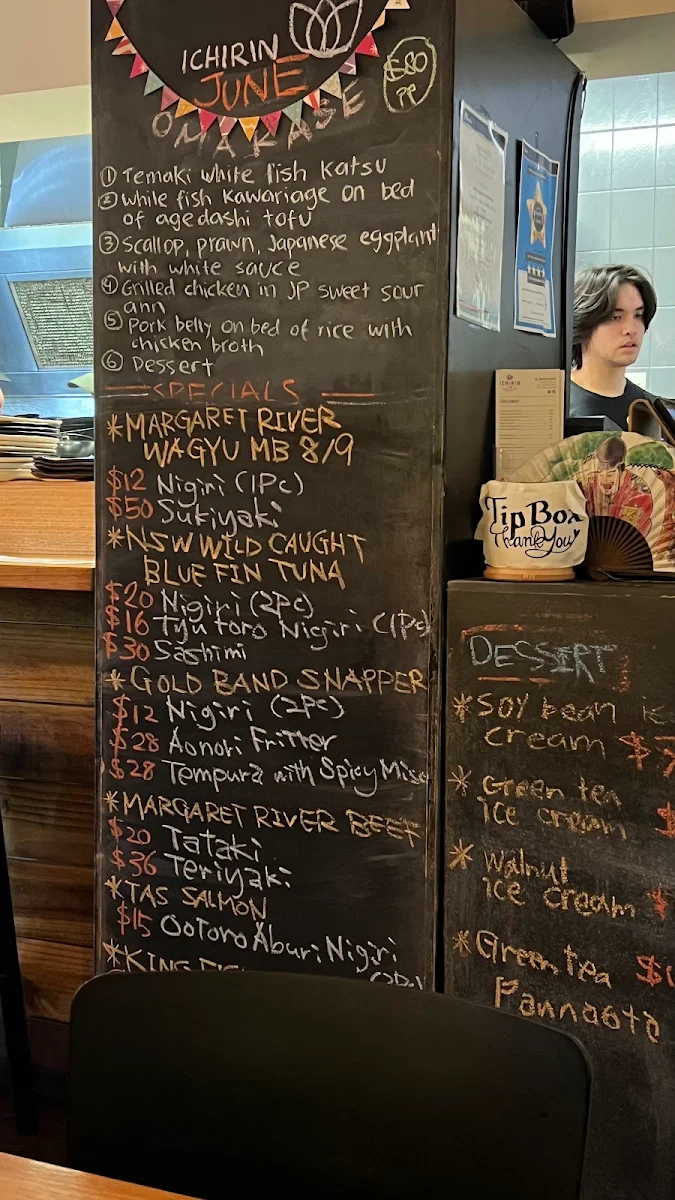 ICHIRIN
JUNE
OMAKASE
$80
PP
① Temaki white fish katsu
② While fish kawariage on bed
of agedashi tofu
③ Scallop, prawn, Japanese eggplant
with white sauce
④ Grilled chicken in JP sweet sour
ann
⑤ Pork belly on bed of rice with
chicken broth
⑥ Dessert
SPECIALS
*MARGARET RIVER
WAGYU MB 8/9
$12 Nigiri (1Pc)
$50 Sukiyaki
*NSW WILD CAUGHT
BLUE FIN TUNA
$20 Nigiri (2Pc)
$16 Tyu toro Nigiri (1Pc)
$30 Sashimi
*GOLD BAND SNAPPER
$12 Nigiri (2Pc)
$28 Aonori Fritter
$28 Tempura with Spicy Miso
*MARGARET RIVER BEEF
$20 Tataki
$36 Teriyaki
*TAS SALMON
$15 Ootoro Aburi Nigiri
*KING
ICHIRIN
Tip Box
Thank You
DESSERT
*Soy bean
cream
*Green tea
ice cream
*Walnut
ice cream
*Green tea
Pannaota